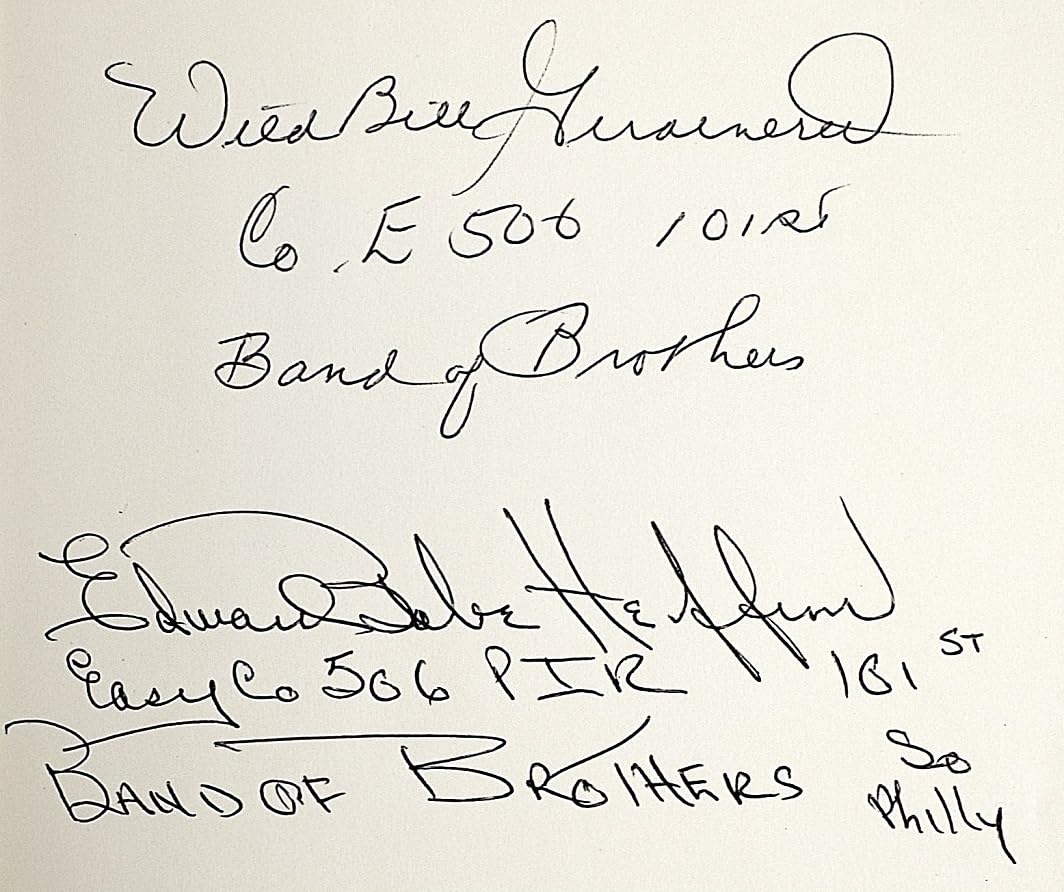 Wild Bill Guarnere
Co. E 506 101st
Band of Brothers
Edward Babe Heffron
Easy Co 506 PIR 101 ST
BAND OF BROTHERS So
Philly